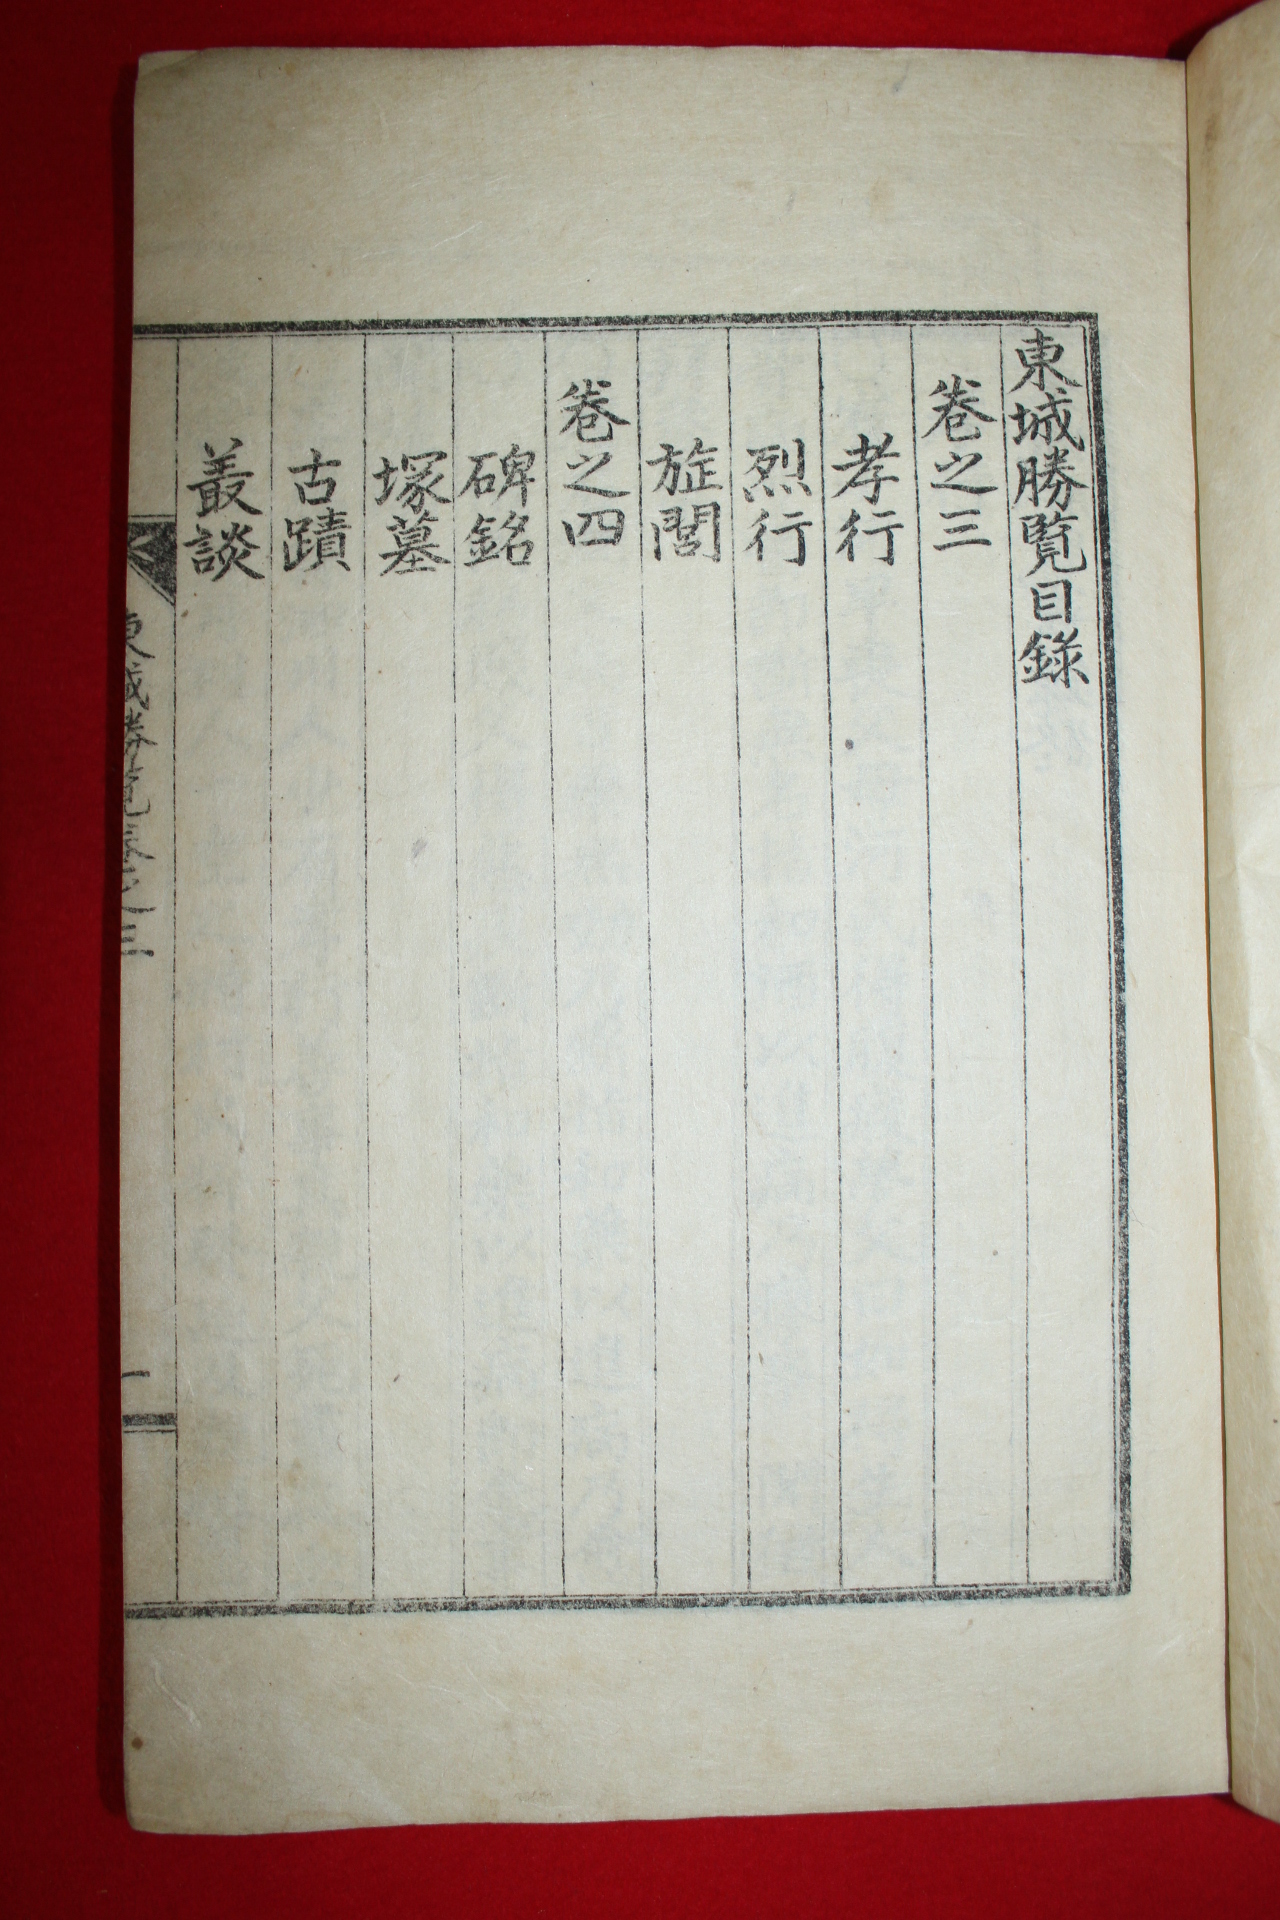 東城勝覽目錄
卷之三
孝行
烈行
旌閭
卷之四
碑銘
塚墓
古蹟
叢談
東城勝覽卷之三
一